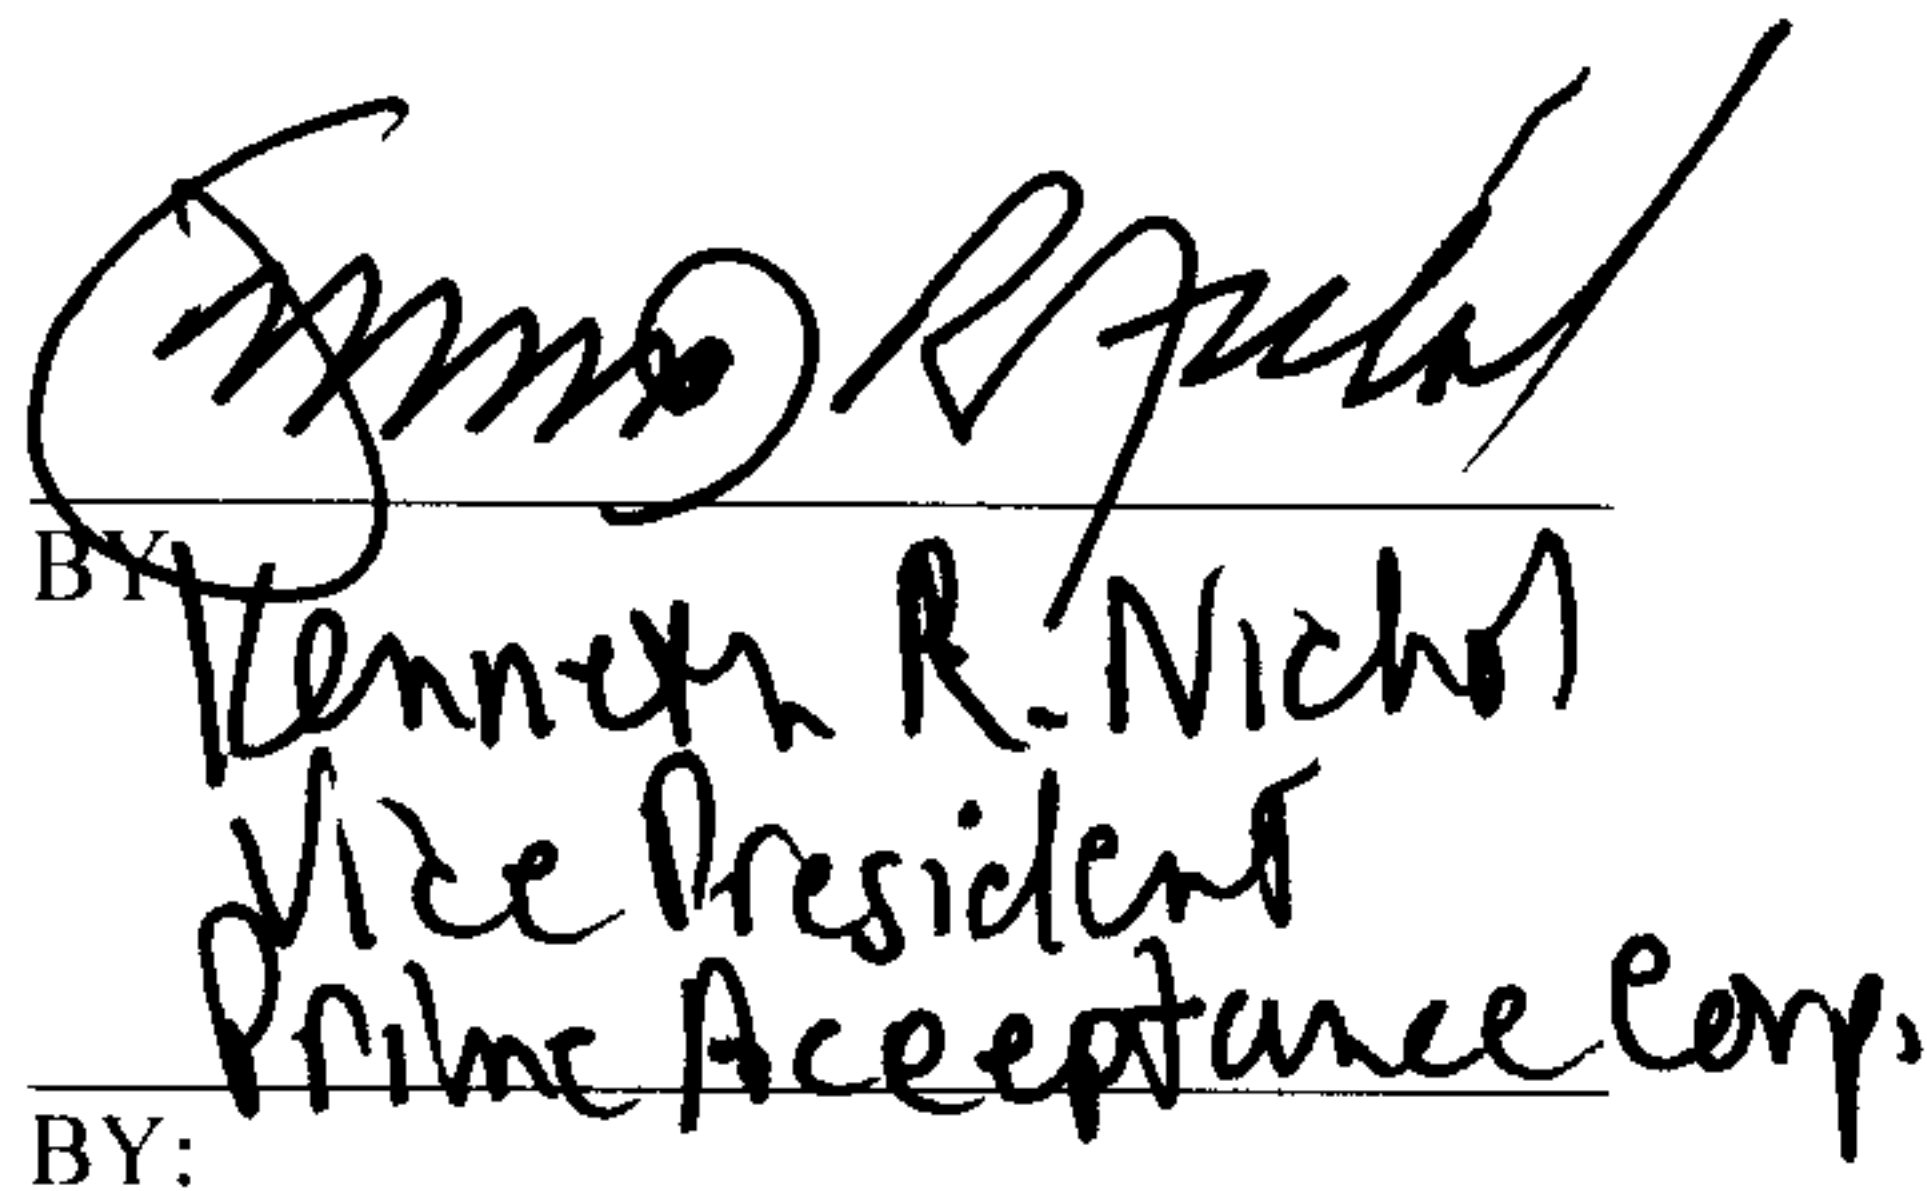 BY
Kenneth R. Nichol
Vice President
Prime Acceptance Corp.
BY: